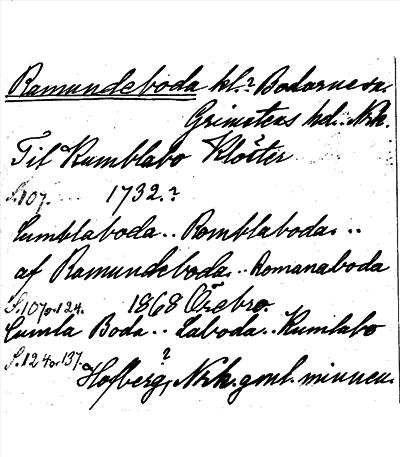 Ramundeboda kl.? Bodarne sn.
Grimstens hd. Nrk.
Till Kumblabo Klöster
S.107. 1732.?
Cumblaboda.. Romblaboda..
af Ramundeboda.. Romanaboda
S.107 o. 124. 1868 Örebro.
Cumla Boda.. Laboda.. Kumlabo
S.124 o. 137. af Hofberg, Nrk. gml. minnen.
?